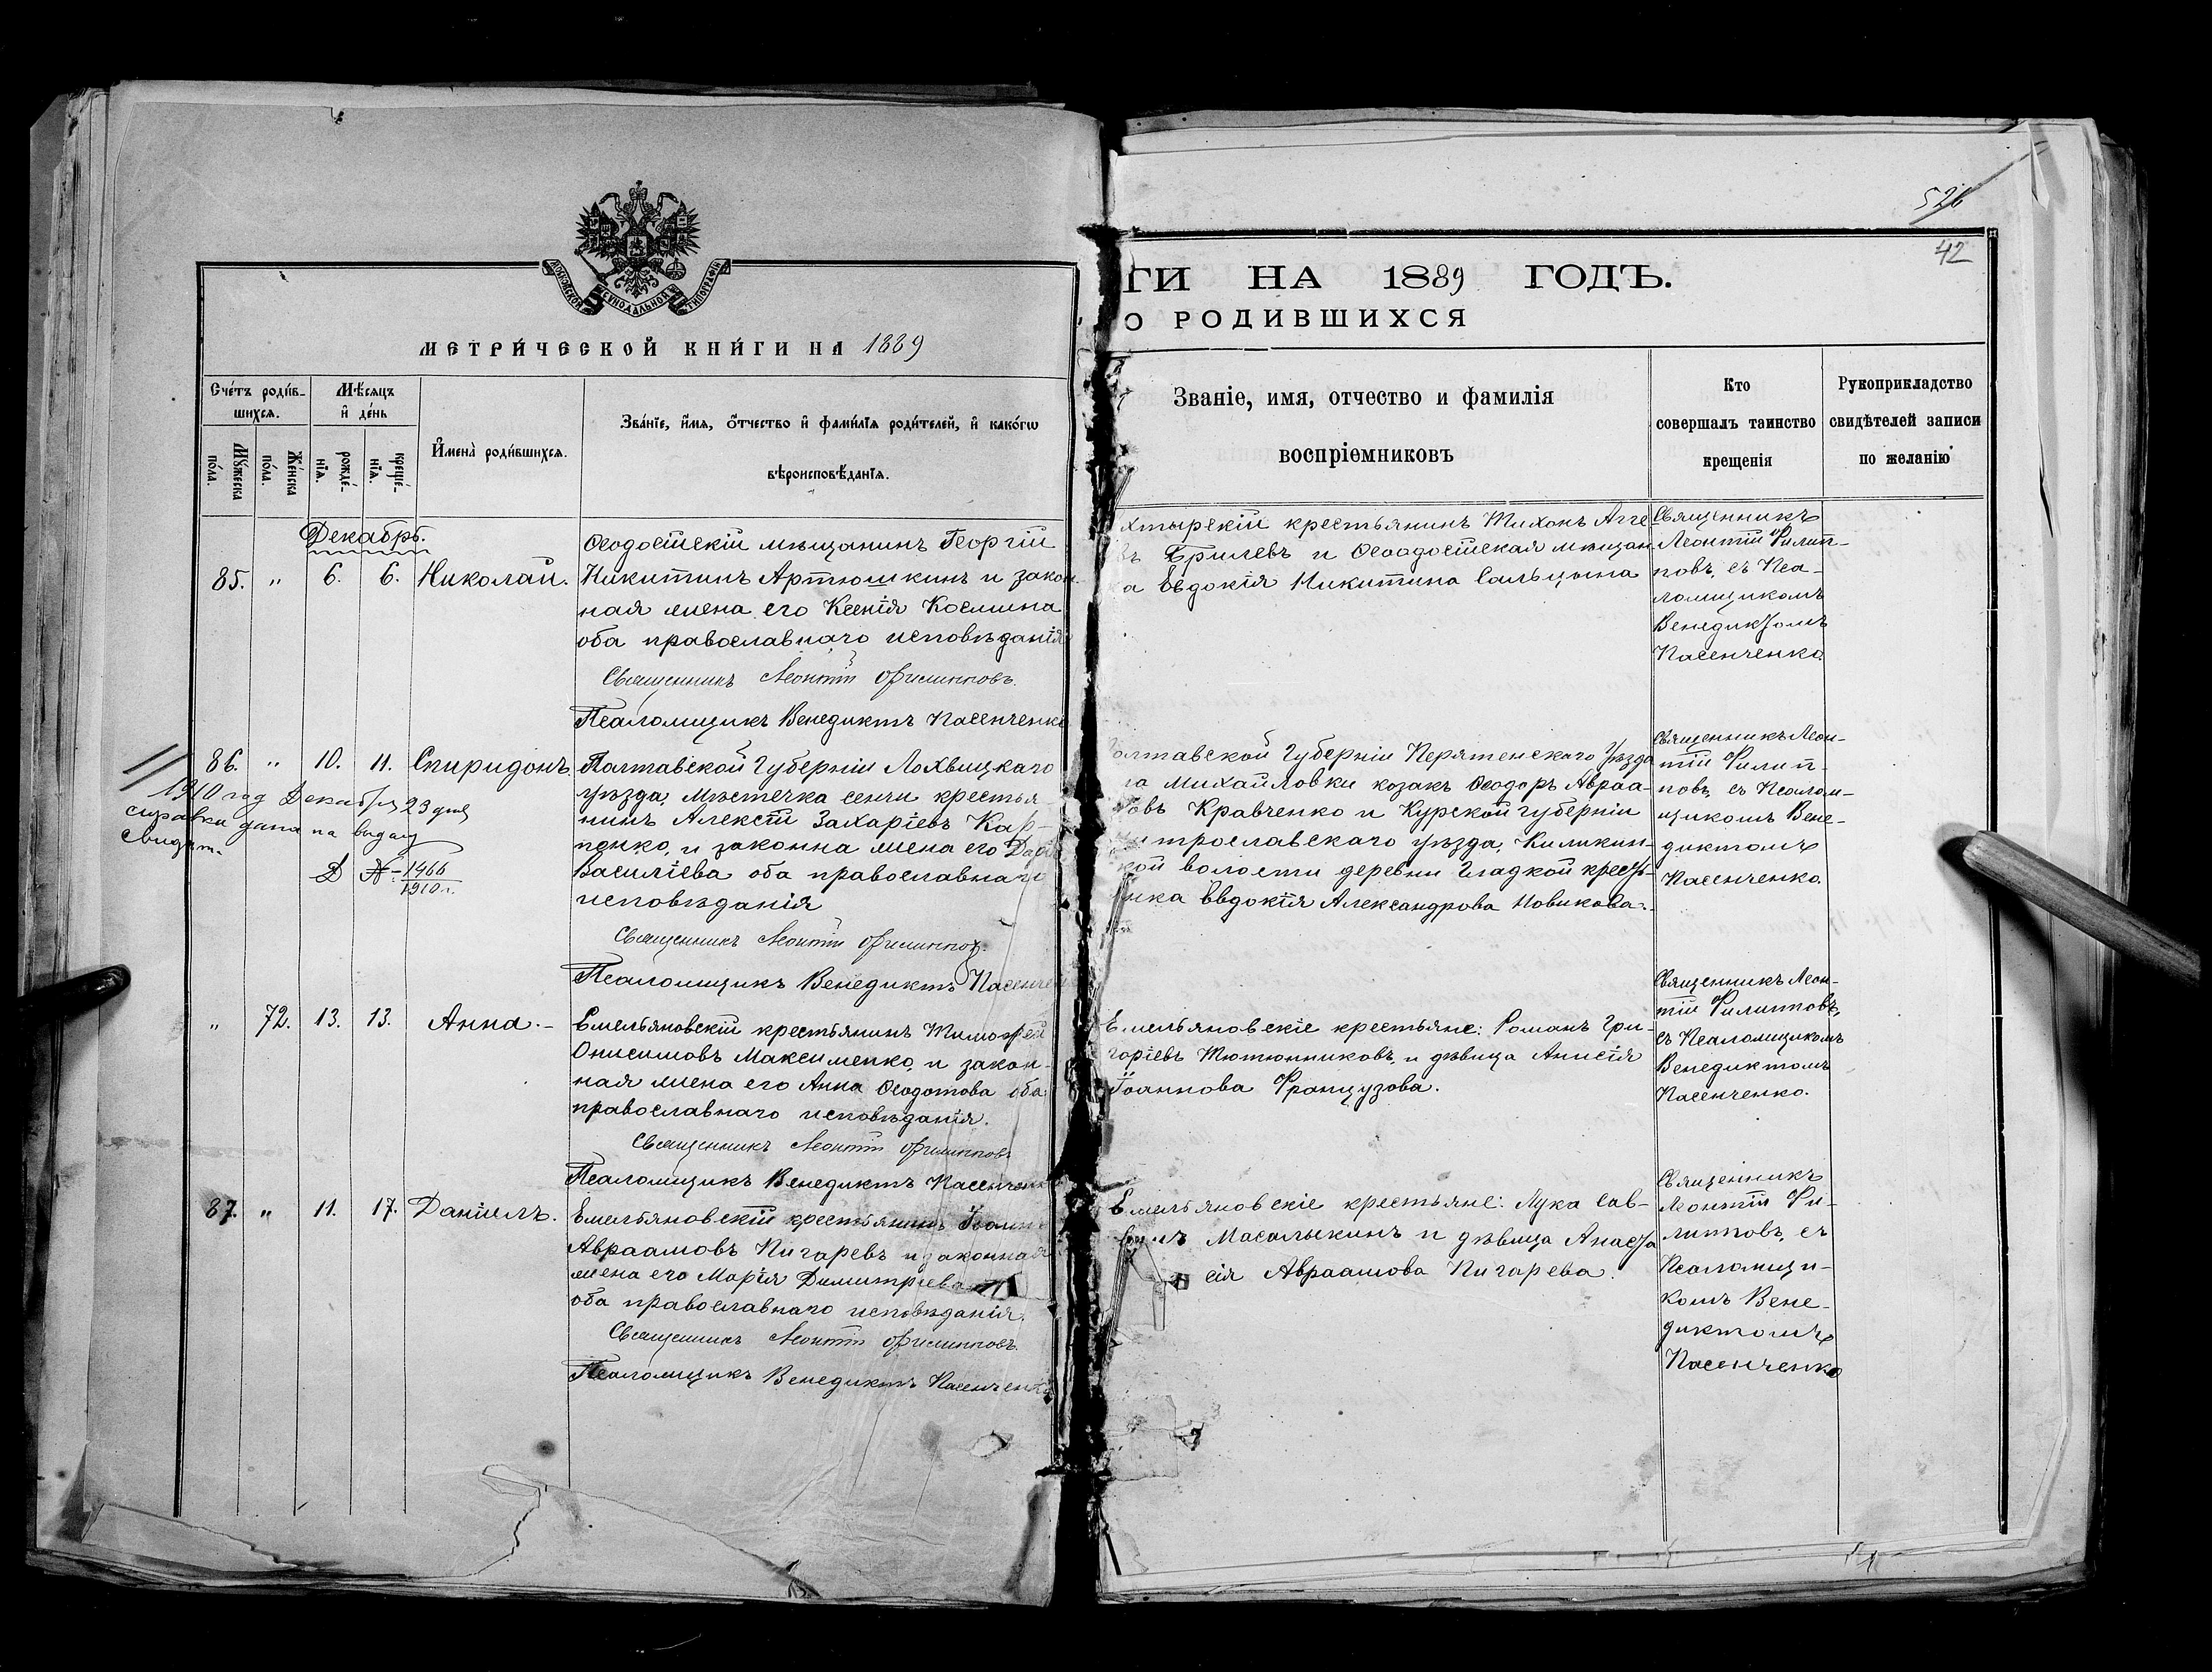 526
42
МОСКОВСКОЙ СѴНОДАЛЬНОЙ ТИПОГРАФІИ
МЕТРИ́ЧЕСКОЙ КНИ́ГИ НА 1889
Сче́тъ роди́в-
шихся.
Мѣ́сяцъ
и҆ де́нь
Мꙋ́жеска
по́ла.
Же́нска
по́ла.
рожде́-
нїѧ.
креще́-
нїѧ.
И҆мена̀ роди́вшихсѧ.
Зва́нїе, и҆́мѧ, ѻ҆́тчество и҆ фами́лїѧ роди́телей, и҆ како́гѡ
вѣроисповѣ́данїѧ.
Декабрь.
85. " 6. 6. Николай.
Ѳеодосійскій мѣщанинъ Георгій
Никитинъ Артюшкинъ и закон
ная жена его Ксенія Косьмина
оба православнаго исповѣданія
Священникъ Леонтій Филипповъ.
Псаломщикъ Венедиктъ Пасенченко
86. " 10. 11. Спиридонъ.
Полтавской Губерніи Лохвицкаго
уѣзда, мѣстечка сенчи крестья
нинъ Алексій Захаріевъ Кар-
пенко, и законна жена его Дарія
Василіева оба православнаго
исповѣданія
Священникъ Леонтій Филиппов.
Псаломщикъ Венедиктъ Пасенчен
1910 год Декабря 23 дня
справка дана на выдачу
свидет.
Д № 1466
1910 г.
" 72. 13. 13. Анна.-
Емельяновскій крестьянинъ Тимоѳей
Онисимовъ Максименко, и закон-
ная жена его Анна Ѳеодотова оба
православнаго исповѣданія.
Священникъ Леонтій Филипповъ
Псаломщикъ Венедиктъ Пасенченко
87. " 11. 17. Даніилъ.
Емельяновскій крестьянинъ Іоаннъ
Авраамовъ Пигаревъ и законная
жена его Марія Димитріева
оба православнаго исповѣданія.
Священникъ Леонтій Филипповъ.
Псаломщикъ Венедиктъ Пасенченко
ГИ НА 1889 ГОДЪ.
О РОДИВШИХСЯ
Званіе, имя, отчество и фамилія
воспріемниковъ
Кто
совершалъ таинство
крещенія
Рукоприкладство
свидѣтелей записи
по желанію
хтырскій крестьянинъ Тихонъ Агге-
въ Брилевъ и Ѳеодосійская мѣщан
а Евдокія Никитина Сальцына
Священникъ
Леонтій Филип-
повъ, съ Пса-
ломщикомъ
Венедиктомъ
Пасенченко.
олтавской Губерніи Перятенскаго уѣзда
ла Михайловки козакъ Ѳеодоръ Авраа-
мовъ Кравченко и Курской губерніи
митрославскаго уѣзда, Киликин-
кой волости деревни Гладкой кресть-
нка Евдокія Александрова Новикова.
Священникъ Леон-
тій Филип-
повъ, съ Псалом-
щикомъ Вене-
диктомъ
Пасенченко.
Емельяновскіе крестьяне: Романъ Гри-
горіевъ Тютюнниковъ, и дѣвица Анисія
Іоаннова Французова.
Священникъ Леон-
тій Филипповъ,
съ Псаломщикомъ
Венедиктомъ
Пасенченко.
Емельяновскіе крестьяне: Лука Сав-
винъ Масалыкинъ и дѣвица Анаста
сія Авраамова Пигарева.
Священникъ
Леонтій Фи-
липповъ, съ
Псаломщи-
комъ Вене-
диктомъ
Пасенченко